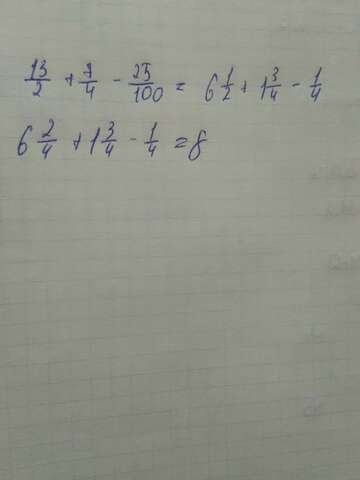 13/2 + 7/4 - 25/100 = 6 1/2 + 1 3/4 - 1/4
6 2/4 + 1 3/4 - 1/4 = 8